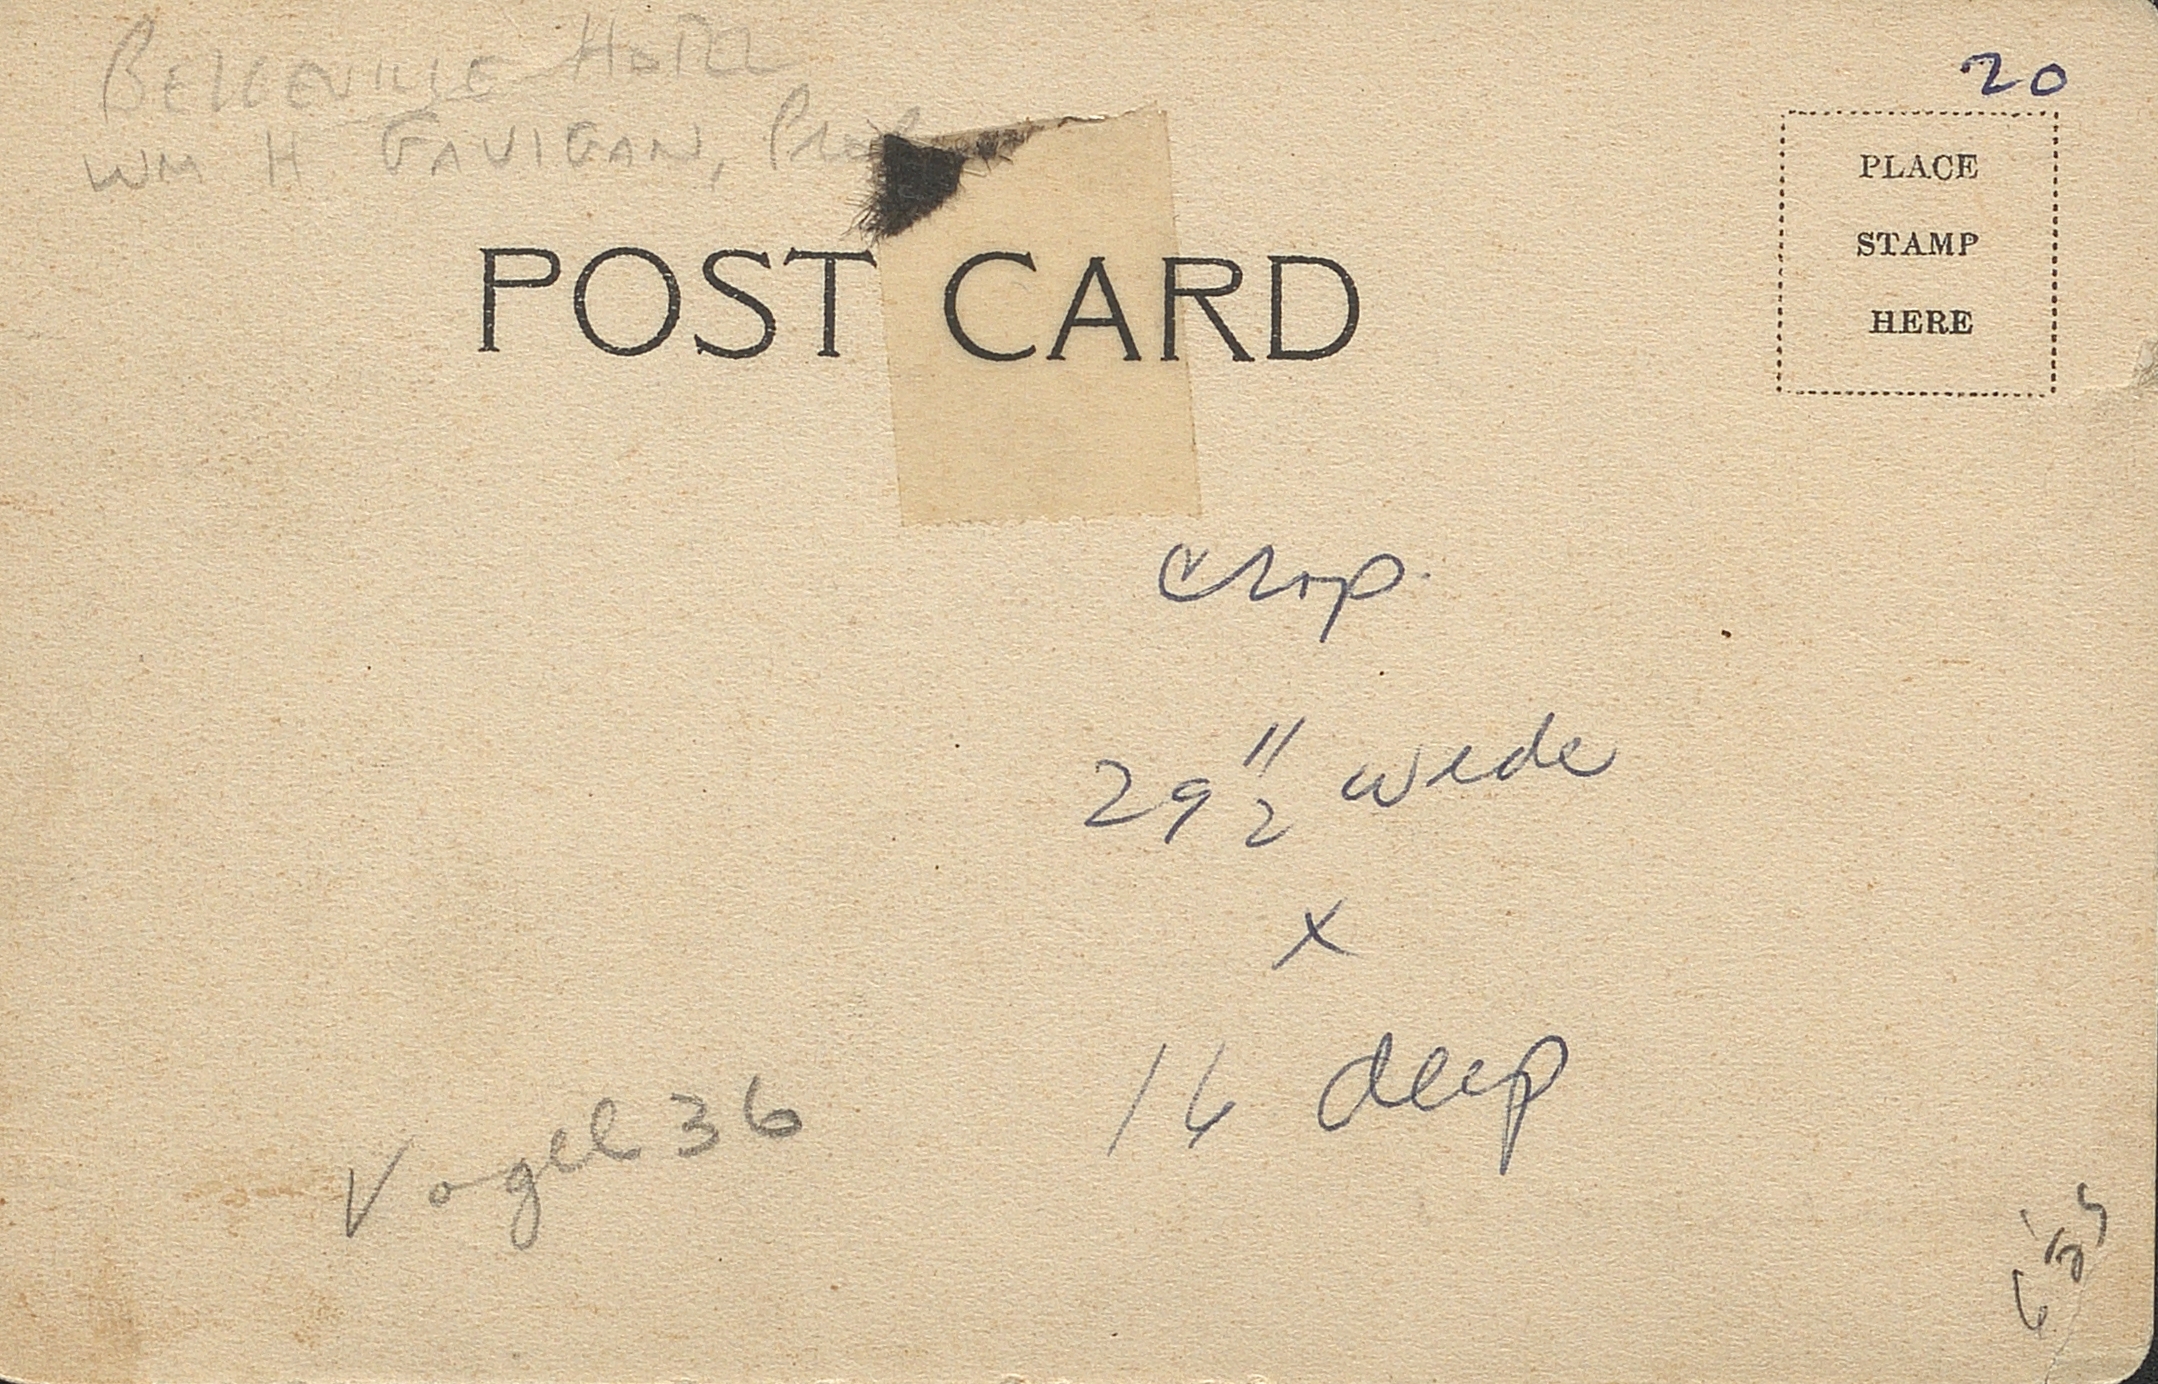 BELLEVILLE HOTEL
WM H GAVIGAN, Prop
20
POST CARD
PLACE
STAMP
HERE
Crop
29 1/2" wide
x
16 deep
Vogel 36